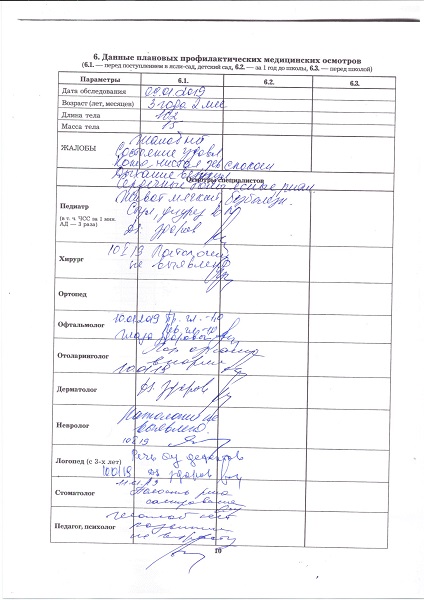 6. Данные плановых профилактических медицинских осмотров
(6.1. — перед поступлением в ясли-сад, детский сад, 6.2. — за 1 год до школы, 6.3. — перед школой)
Параметры 6.1. 6.2. 6.3.
Дата обследования 09.01.2019
Возраст (лет, месяцев) 3 года 2 мес
Длина тела 102
Масса тела 15
ЖАЛОБЫ Жалоб нет
Состояние удовл
Кожа чистая зев спокоен
Дыхание
Осмотры специалистов
Сердечные тоны ясные, ритм.
Педиатр Живот мягкий, безболезн.
(в т. ч. ЧСС за 1 мин.
АД — 3 раза)
Стул, диурез N
Ds здоров
Хирург 10/I 19 Патологии
не выявлено
Ортопед
Офтальмолог 10.01.2019
глаза здоровы
Отоларинголог Лор органы
в норме
10.01.19
Дерматолог Ds здоров
Невролог Патологии не
выявлено.
Логопед (с 3-х лет) Речь без дефектов
Ds здоров
Стоматолог Полость рта
санирована
Педагог, психолог Жалоб нет
развитие
по возрасту
10